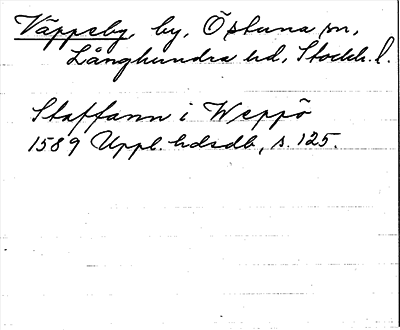 Väppeby by, Östuna sn,
Långhundra hd, Stockh. l.
Staffann i Weppö
1589 Uppl. hdsdb, s. 125.